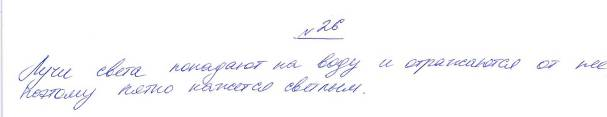 №26
Лучи света попадают на воду и отражаются от нее
поэтому пятно кажется светлым.